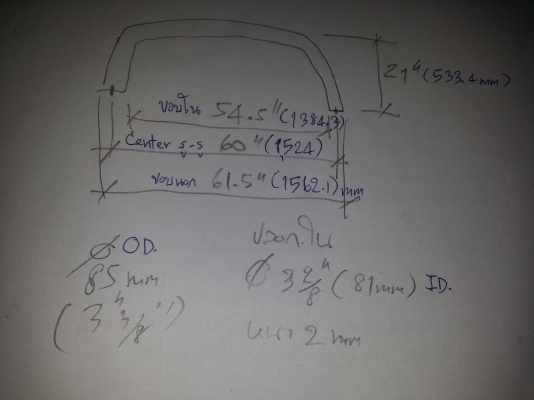 21" (533.4 mm)
ขอบใน 54.5" (1384.3)
Center รู-รู 60" (1524)
ขอบนอก 61.5" (1562.1) mm
Ø OD.
85 mm
(3" 3/8")
ปลอกใน
Ø 3 2/8" (81mm) ID.
หนา 2 mm